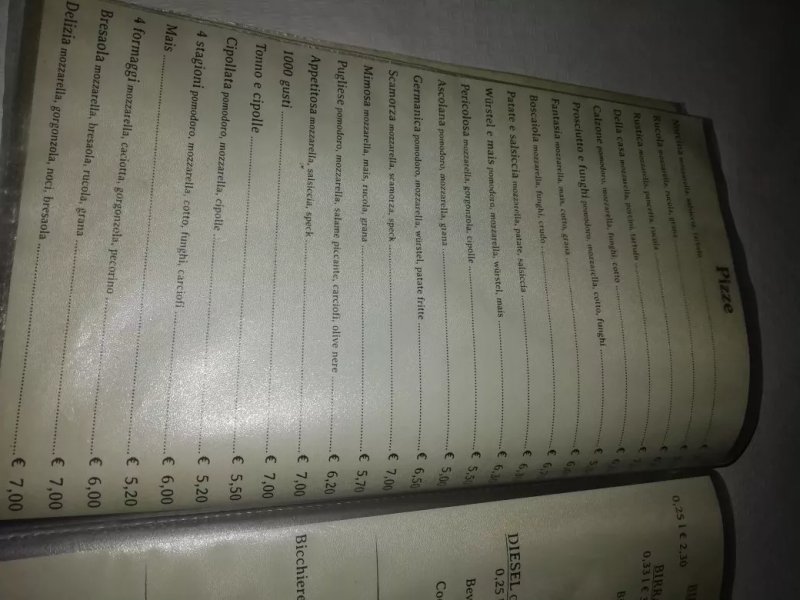 Pizze
mozzarella, rucola, grana
Rucola mozzarella, pancetta, rucola
Rustica mozzarella, porcini, tartufo
Della casa mozzarella, funghi, cotto
Calzone pomodoro, mozzarella, cotto, funghi
Prosciutto e funghi pomodoro, mozzarella, cotto, funghi
Fantasia mozzarella, mais, cotto, grana
Boscaiola mozzarella, funghi, crudo
Patate e salsiccia mozzarella, patate, salsiccia
Würstel e mais pomodoro, mozzarella, würstel, mais
Pericolosa mozzarella, gorgonzola, cipolle € 5,50
Ascolana pomodoro, mozzarella, grana € 5,00
Germanica pomodoro, mozzarella, würstel, patate fritte € 6,50
Scamorza mozzarella, scamorza, speck € 7,00
Mimosa mozzarella, mais, rucola, grana € 5,70
Pugliese pomodoro, mozzarella, salame piccante, carciofi, olive nere € 6,20
Appetitosa mozzarella, salsiccia, speck € 7,00
1000 gusti € 7,00
Tonno e cipolle € 5,50
Cipollata pomodoro, mozzarella, cipolle € 5,20
4 stagioni pomodoro, mozzarella, cotto, funghi, carciofi € 6,00
Mais € 5,20
4 formaggi mozzarella, caciotta, gorgonzola, pecorino € 6,00
Bresaola mozzarella, bresaola, rucola, grana € 7,00
Delizia mozzarella, gorgonzola, noci, bresaola € 7,00
0,25 l € 2,30
BIRR
0,33 l €
DIESEL
0,25
Bev
Bicchiere